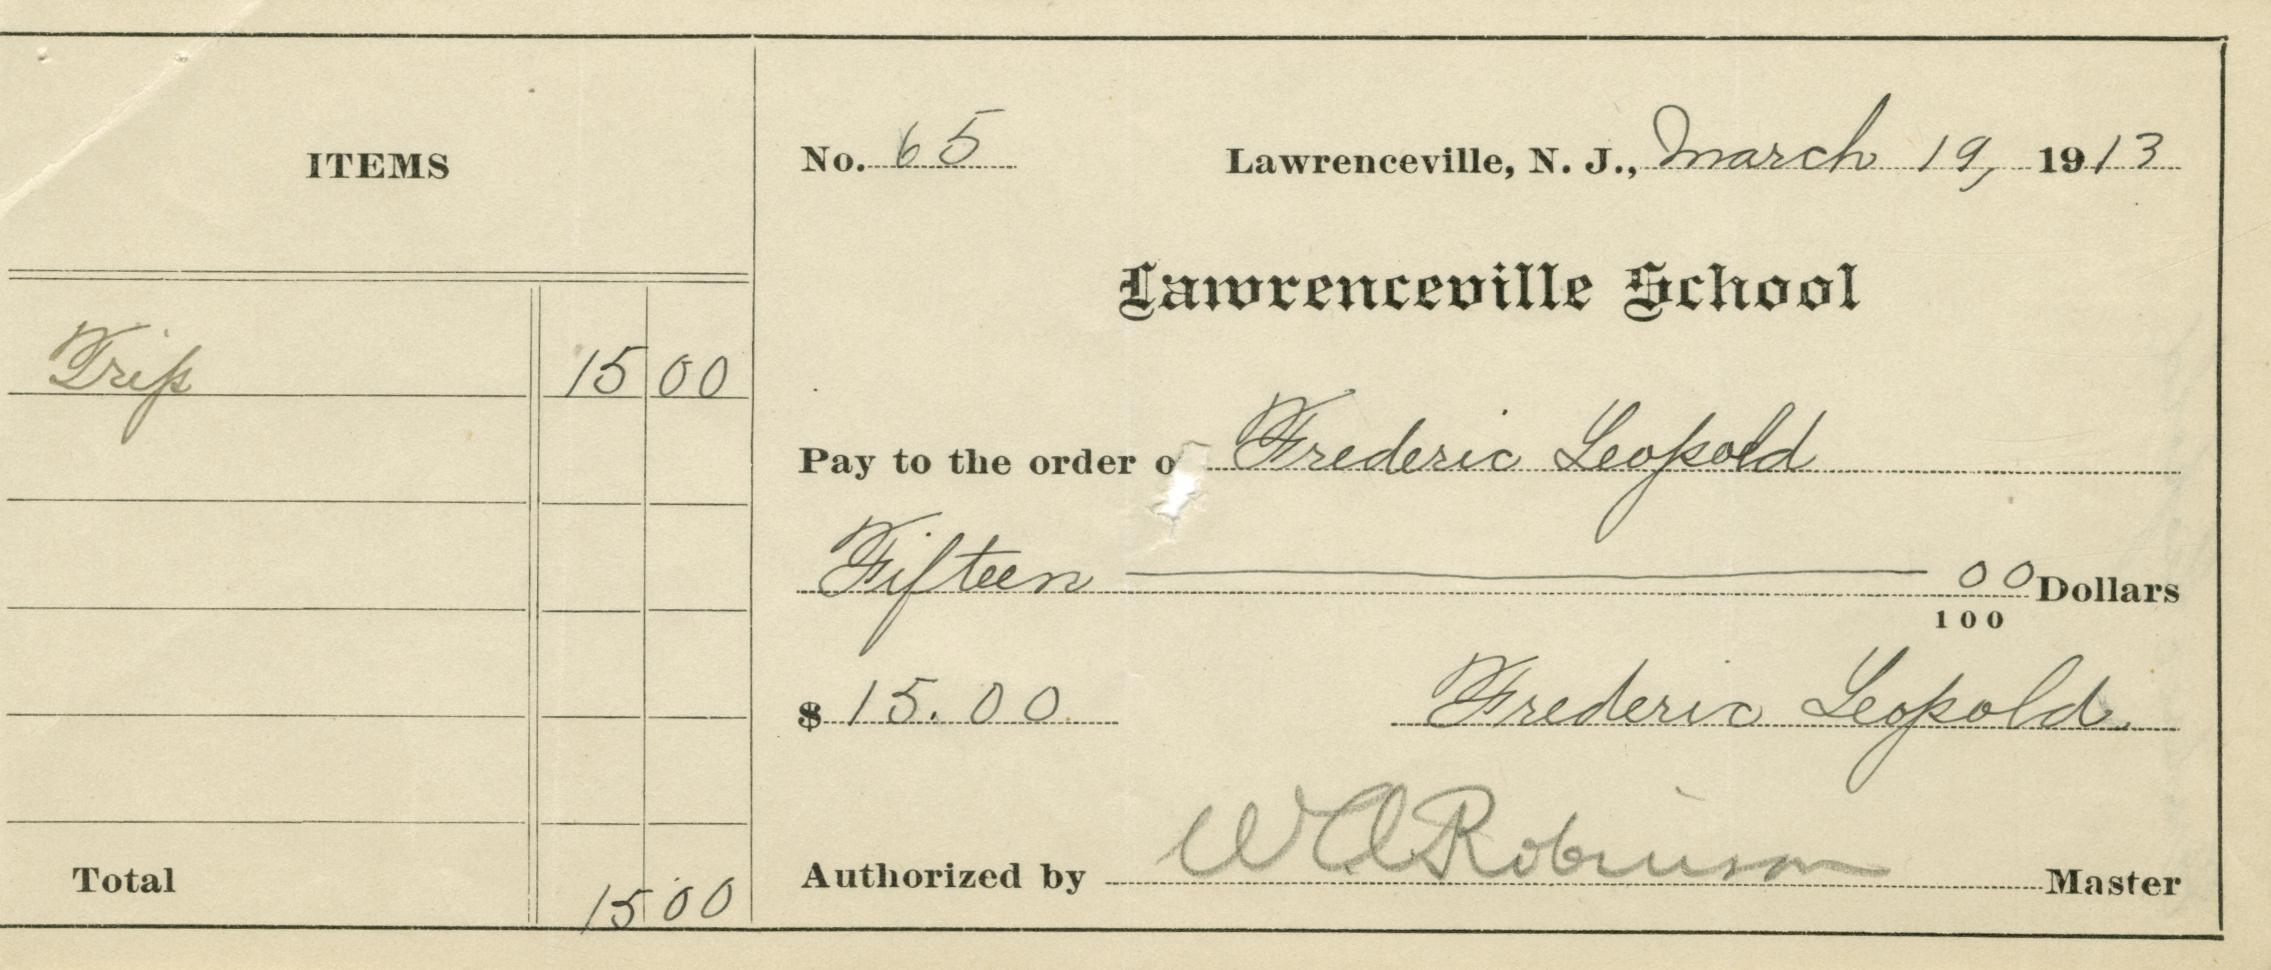 ITEMS
Trip 15 00
Total 15 00
No. 65 Lawrenceville, N. J., March 19, 1913
Lawrenceville School
Pay to the order o Frederic Leopold
Fifteen 00 Dollars
100
$ 15.00 Frederic Leopold.
Authorized by W A Robinson Master